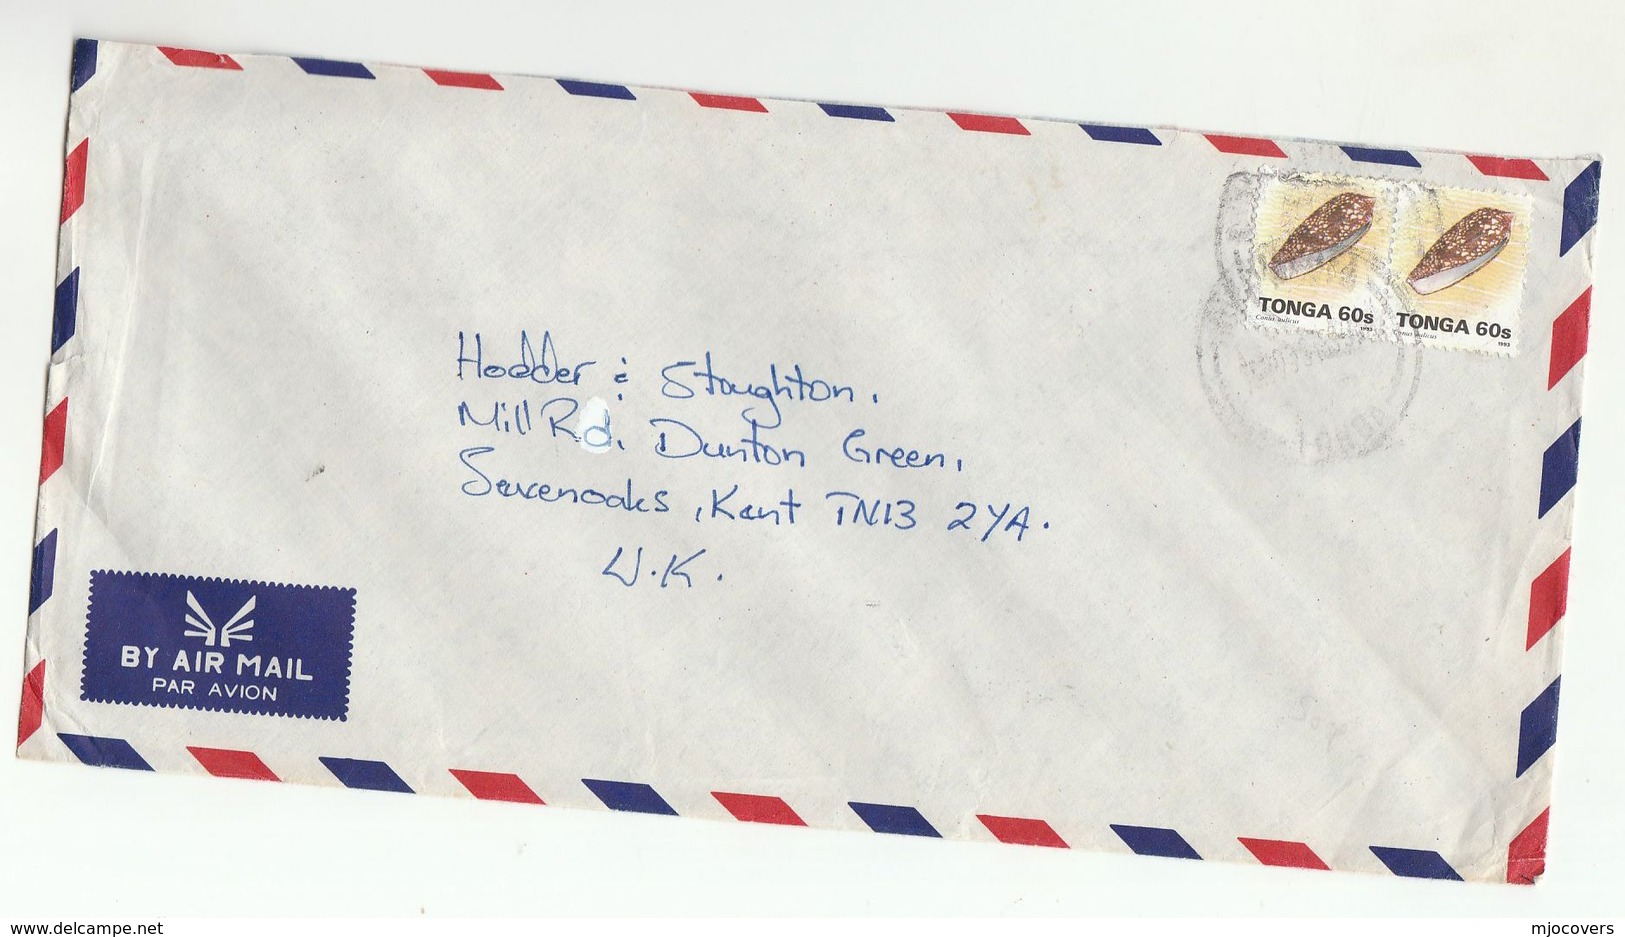 TONGA 60s
Conus aulicus
1993
TONGA 60s
Conus aulicus
1993
Hodder & Stoughton.
Mill Rd. Dunton Green,
Sevenoaks, Kent TN13 2YA.
U.K.
BY AIR MAIL
PAR AVION
delcampe.net
mjocovers